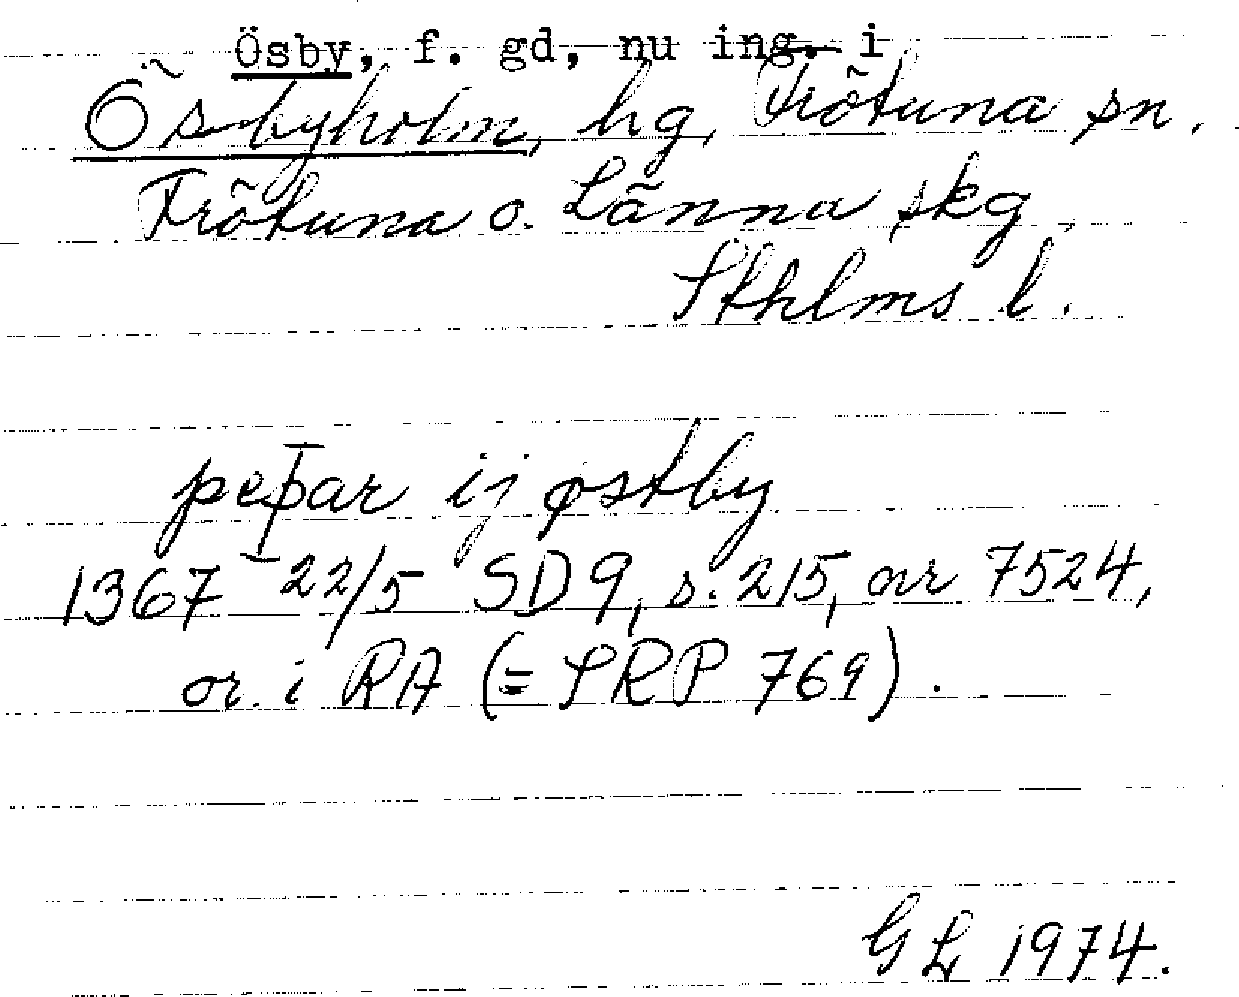 Ösby, f. gd, nu ing. i
Ösbyholm, hg, Frötuna sn.
Frötuna o. Länna skg
Sthlms l.
peþar ij østby
1367 22/5 SD 9, s. 215, nr 7524,
or. i RA (= SRP 769).
GL 1974.